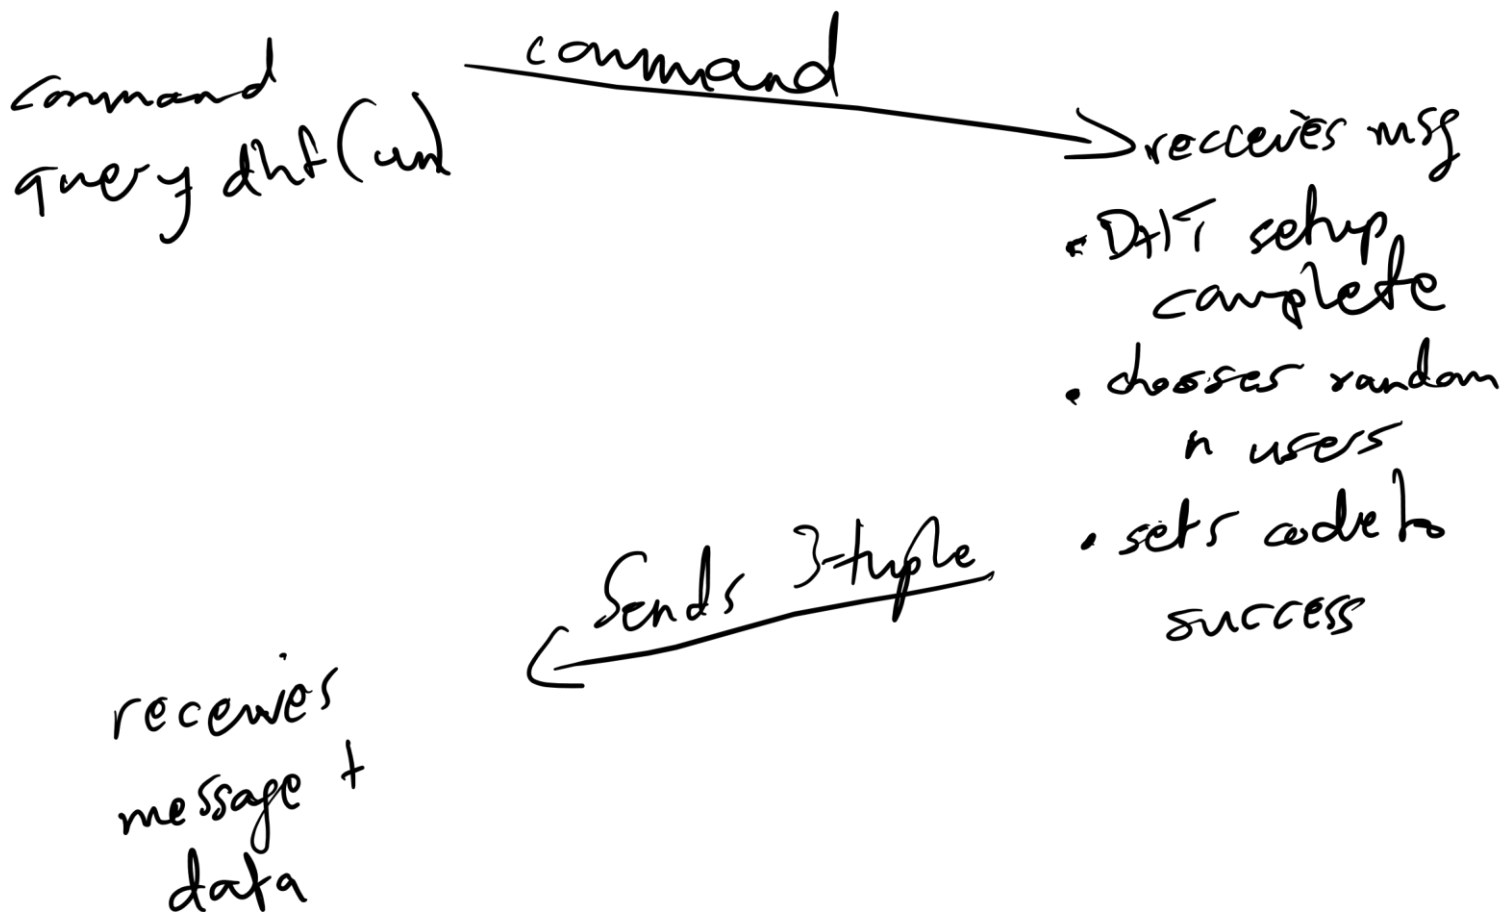 command
query dht(un)
command
recceives msg
• DHT setup
complete
• chooses random
n users
• sets code to
success
Sends 3-tuple
receives
message +
data